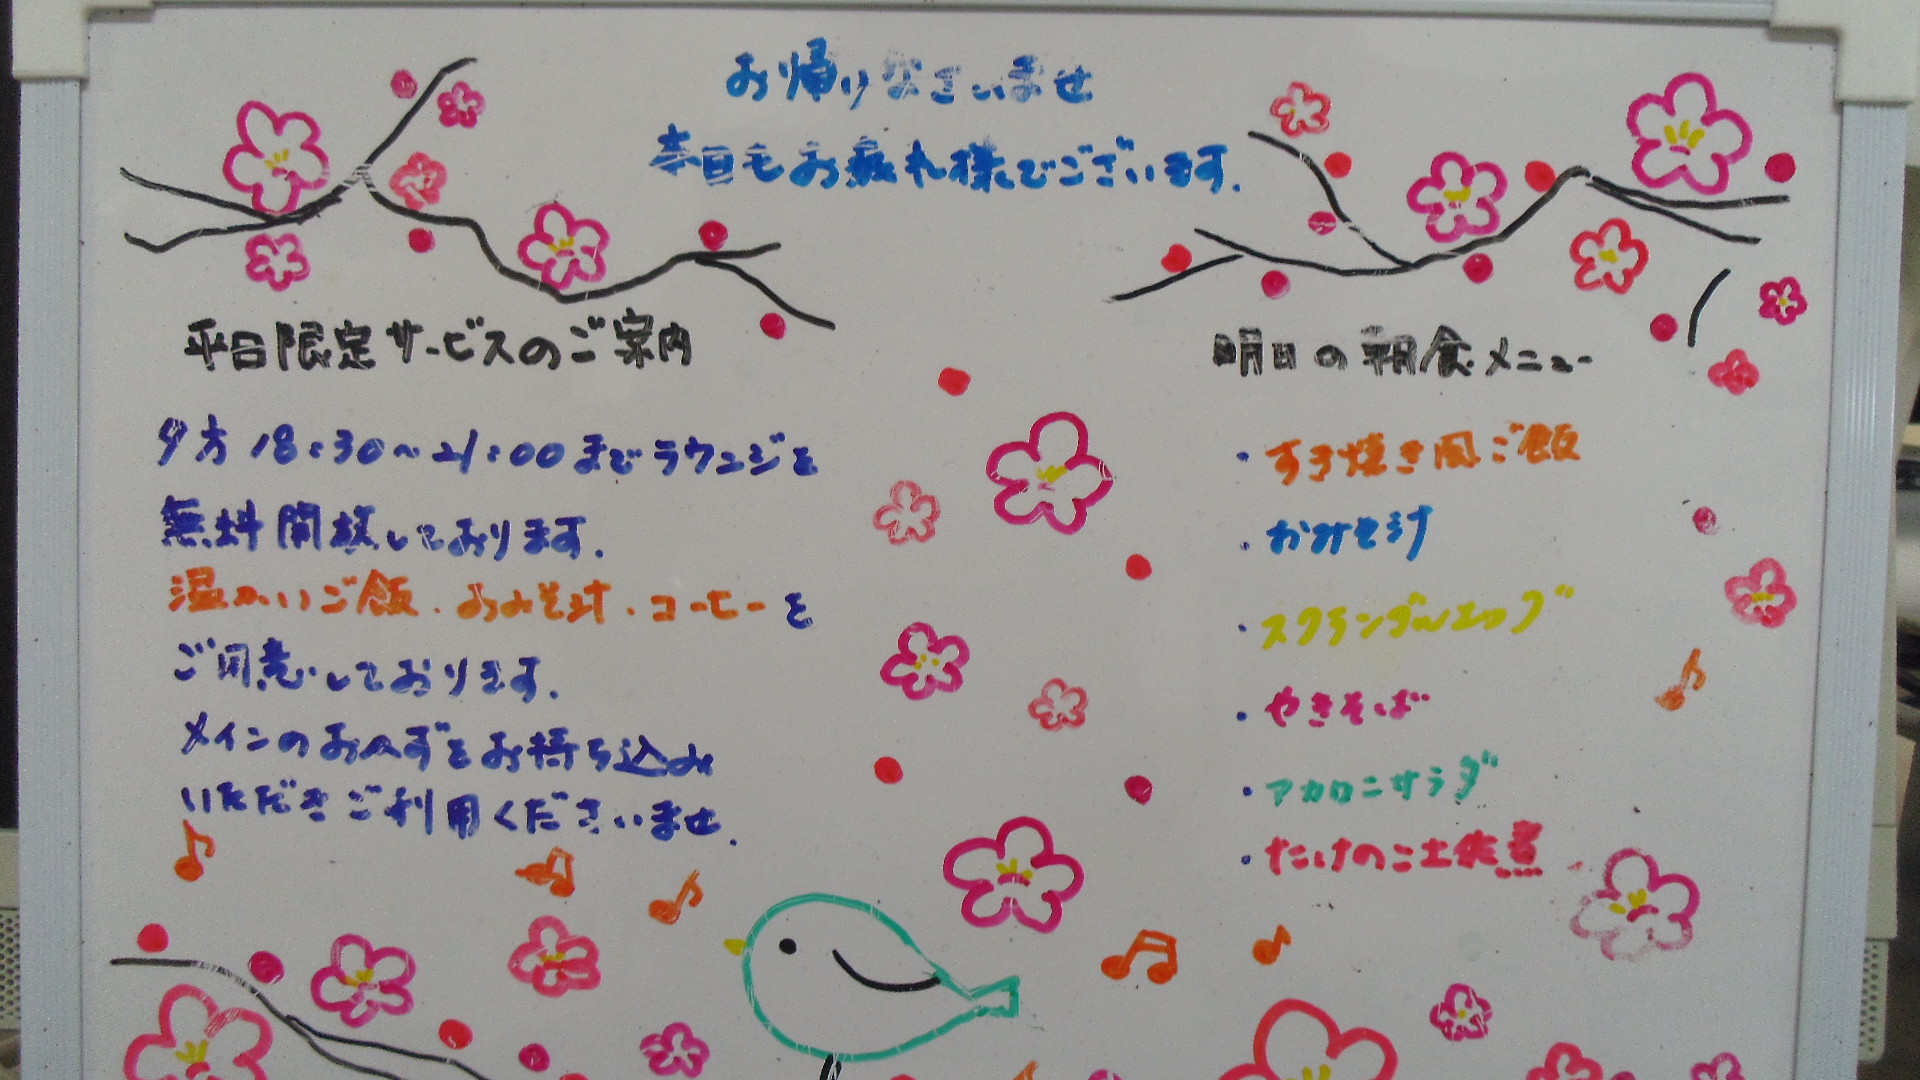 お帰りなさいませ
本日もお疲れ様でございます.
平日限定サービスのご案内
夕方18:30〜21:00までラウンジを
無料開放しております.
温かいご飯.おみそ汁.コーヒーを
ご用意しております.
メインのおかずをお持ち込み
いただきご利用くださいませ.
明日の朝食メニュー
・すき焼き風ご飯
・おみそ汁
・スクランブルエッグ
・やきそば
・マカロニサラダ
・たけのこ土佐煮